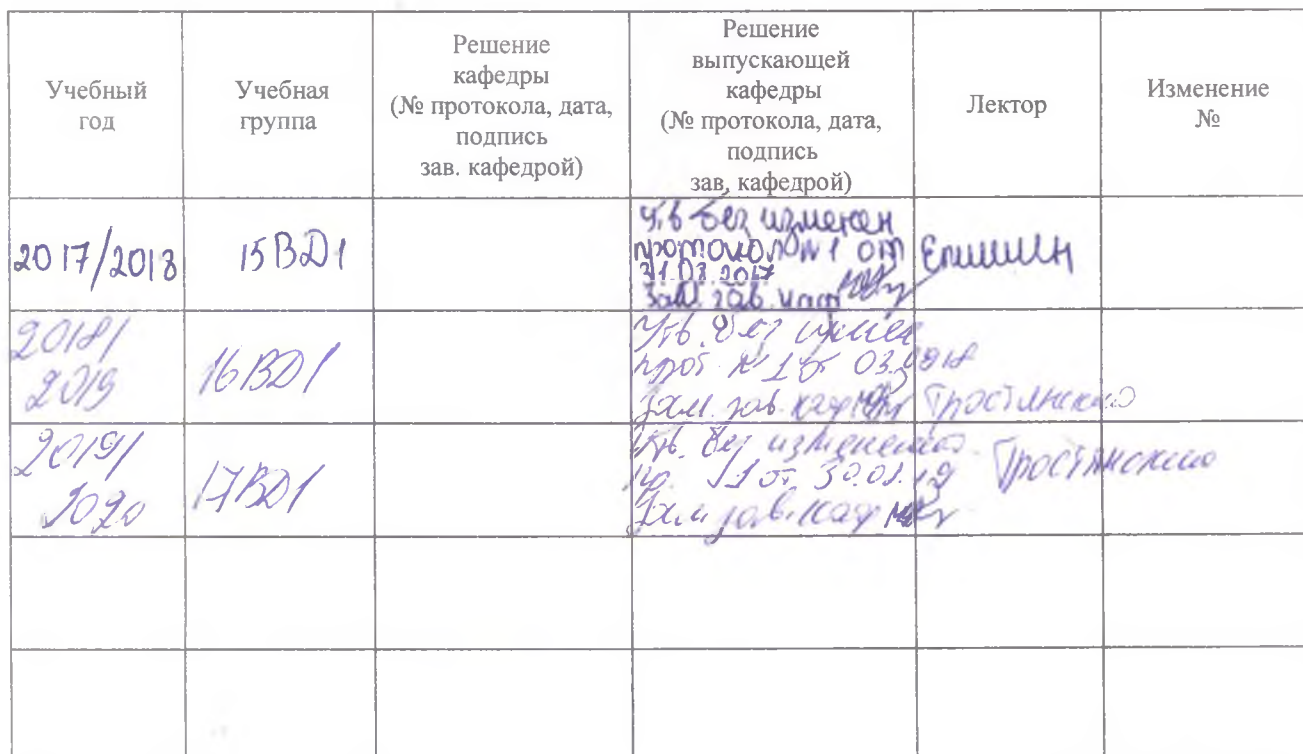 Учебный
год
Учебная
группа
Решение
кафедры
(№ протокола, дата,
подпись
зав. кафедрой)
Решение
выпускающей
кафедры
(№ протокола, дата,
подпись
зав, кафедрой)
Лектор
Изменение
№
2017/2018
15ВД1
Утв без изменен
протокол №1 от
2017
Зам. зав. каф
Епишин
2018/
2019
16ВД1
Утв. без
прот № 1 от 03.
Зам. зав. каф
2019/
2020
17ВД1
Утв. без изменений
1 от 30.08.19
Зам зав. каф